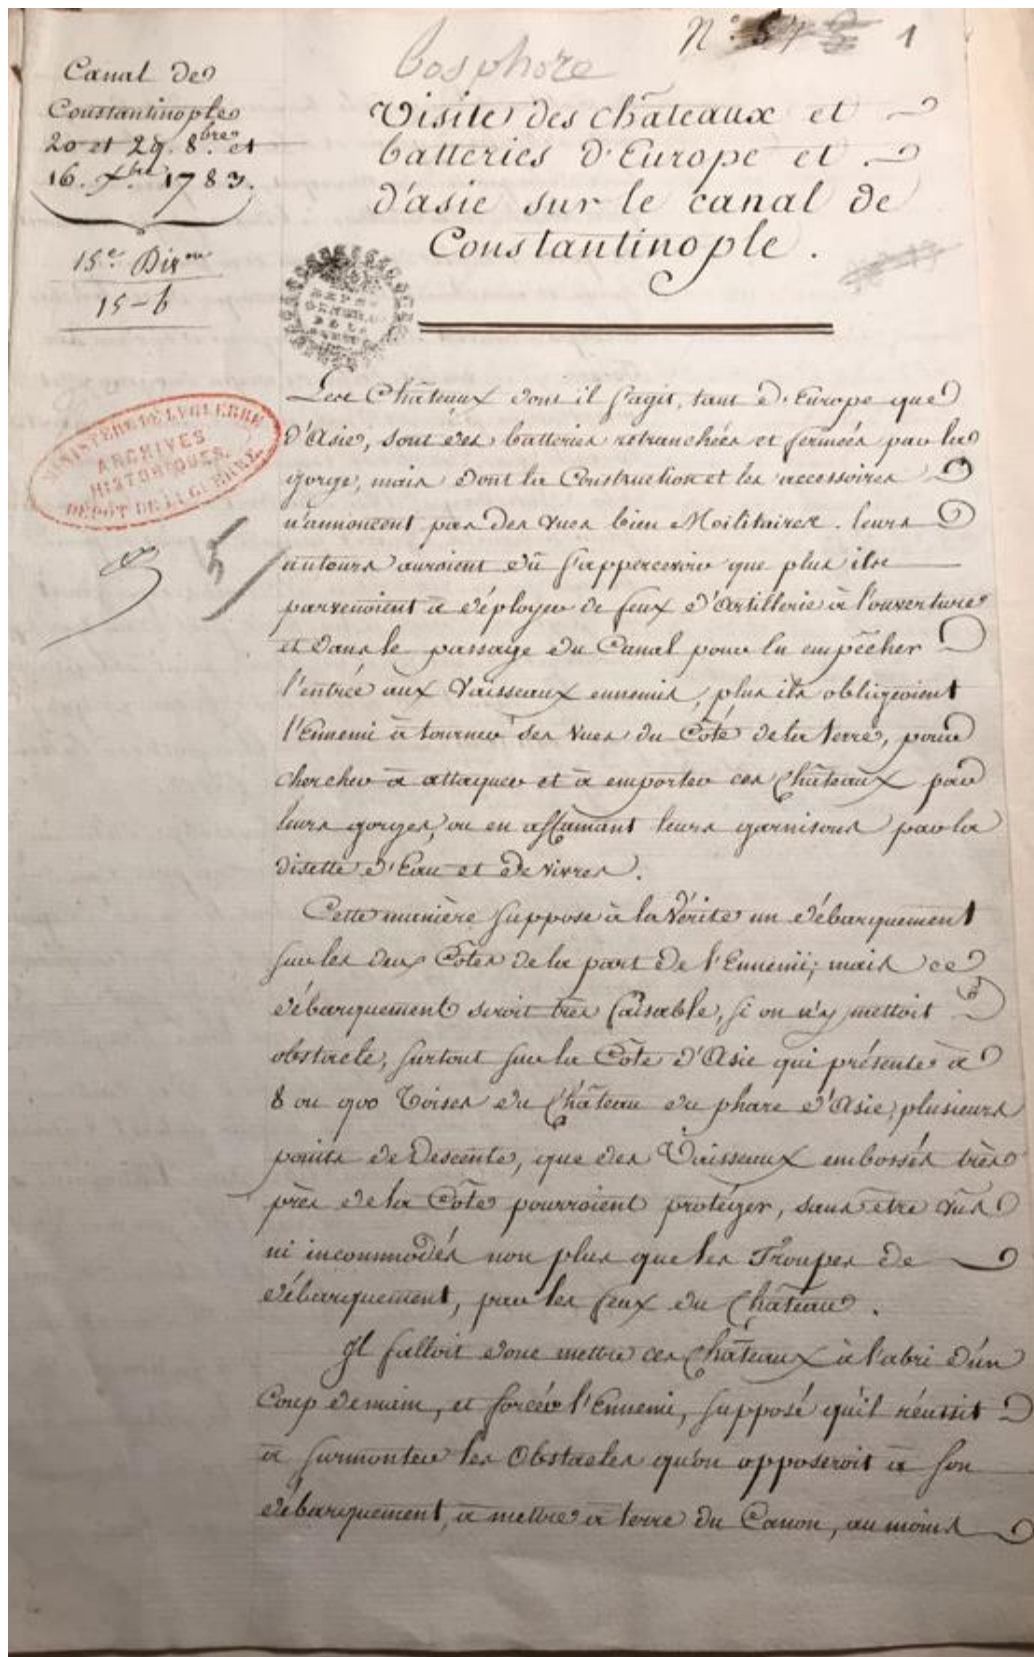 N.°
1
bosphore
Canal de
Constantinople
20 et 29. 8.bre et
16. Xbre 1783.
15e. Dison
15-6
Visite des châteaux et
batteries d'Europe et
d'asie sur le canal de
Constantinople.
DE LA
MINISTERE DE LA GUERRE
ARCHIVES
HISTORIQUES.
DÉPOT DE LA GUERRE
5
Les Châteaux dont il s'agit, tant d'Europe que
d'Asie, sont des batteries retranchées et fermées par la
gorge, mais dont la Construction et les accessoires
n'annoncent pas des vues bien Militaires. leurs
auteurs auroient dû s'appercevoir que plus ils
parvenoient à déployer de feux d'Artillerie à l'ouverture
et dans le passage du Canal pour en empêcher
l'entrée aux Vaisseaux ennemis, plus ils obligeoient
l'Ennemi à tourner ses vues du Côté de la terre, pour
chercher à attaquer et à emporter ces Châteaux par
leurs gorges, ou en affamant leurs garnisons par la
disette d'Eau et de vivres.
Cette manière suppose à la Vérité un débarquement
sur les deux Côtes de la part de l'Ennemi; mais ce
débarquement seroit très faisable, si on n'y mettoit
obstacle, surtout sur la Côte d'Asie qui présente à
8 ou 900 Toises du Château du phare d'Asie, plusieurs
points de Descente, que des Vaisseaux embossés très
près de la Côte pourroient protéger, sans être vûs
ni incommodés non plus que les Troupes de
débarquement, par les feux du Château.
Il falloit donc mettre ces Châteaux à l'abri d'un
Coup de main, et forcer l'Ennemi, supposé qu'il réussit
à surmonter les Obstacles qu'on opposeroit à son
débarquement, à mettre à terre du Canon, au moins